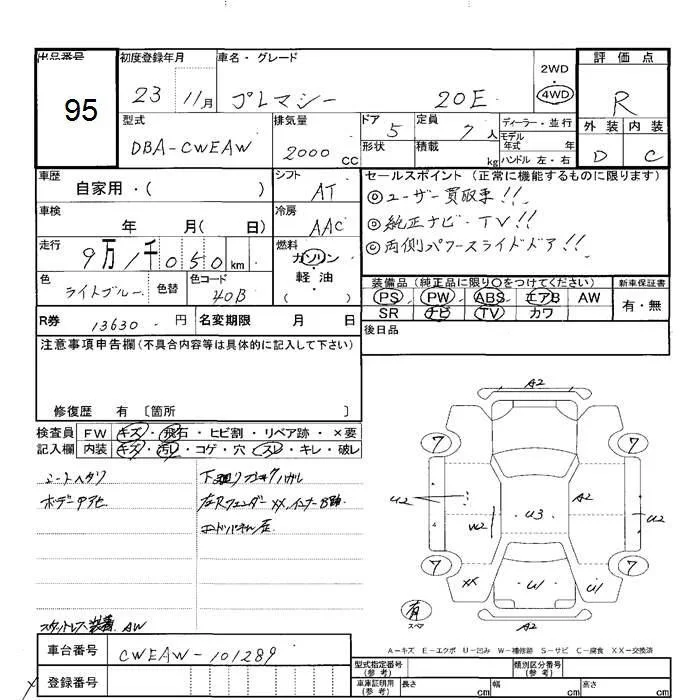 出品番号 初度登録年月 車名・グレード 2WD 評価点
95 23 11月 プレマシー 20E 4WD R
型式 排気量 ドア 定員 ディーラー・並行 外装 内装
DBA-CWEAW 2000 CC 5 7人 モデル年式 年
形状 積載 kg ハンドル 左・右 D C
車歴 シフト セールスポイント(正常に機能するものに限ります)
自家用・( ) AT ◎ユーザー買取車!!
車検 冷房 ◎純正ナビ・TV!!
年 月( 日) AAC ◎両側パワースライドドア!!
走行 燃料
9万1千050km ガソリン・
色 色替 色コード 軽油 装備品(純正品に限り○をつけてください) 新車保証書
ライトブルー 40B ( ) PS PW ABS エアB AW 有・無
SR ナビ TV カワ
R券 13630 円 名変期限 月 日 後日品
注意事項申告欄(不具合内容等は具体的に記入して下さい)
修復歴 有 〔箇所 〕
検査員 FW キズ・飛石・ヒビ割・リペア跡・×要
記入欄 内装 キズ・汚レ・コゲ・穴・スレ・キレ・破レ
シートヘタリ
ボデー
スタットレス装着 AW
A2
7 7
A2
U2 W2 U3 U2
7 7
XX W U1
有
スペア
A2
A-キズ E-エクボ U-凹み W-補修跡 S-サビ C-腐食 XX-交換済
車台番号 CWEAW-101289
登録番号
型式指定番号(参考) 類別区分番号(参考)
車庫証明用(参考) 長さ cm 幅 cm 高さ cm